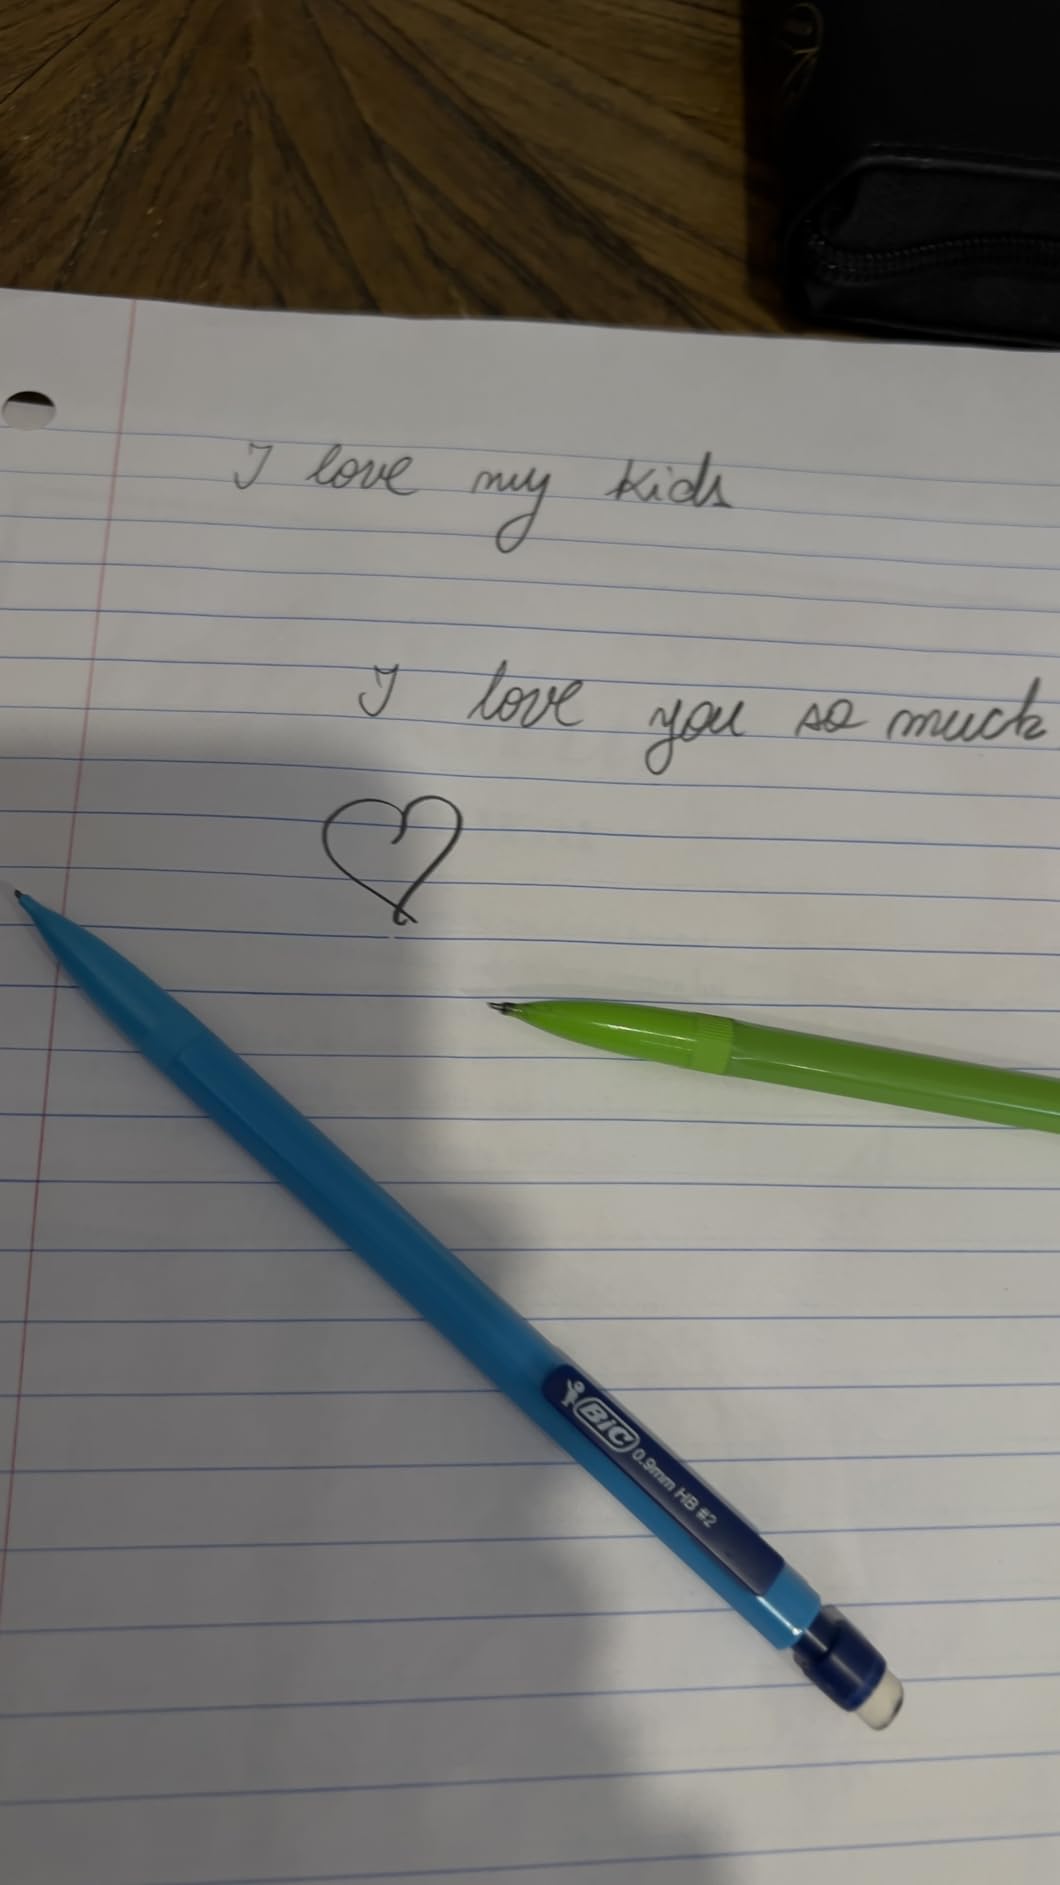 I love my kids
I love you so much
BIC 0.9mm HB #2